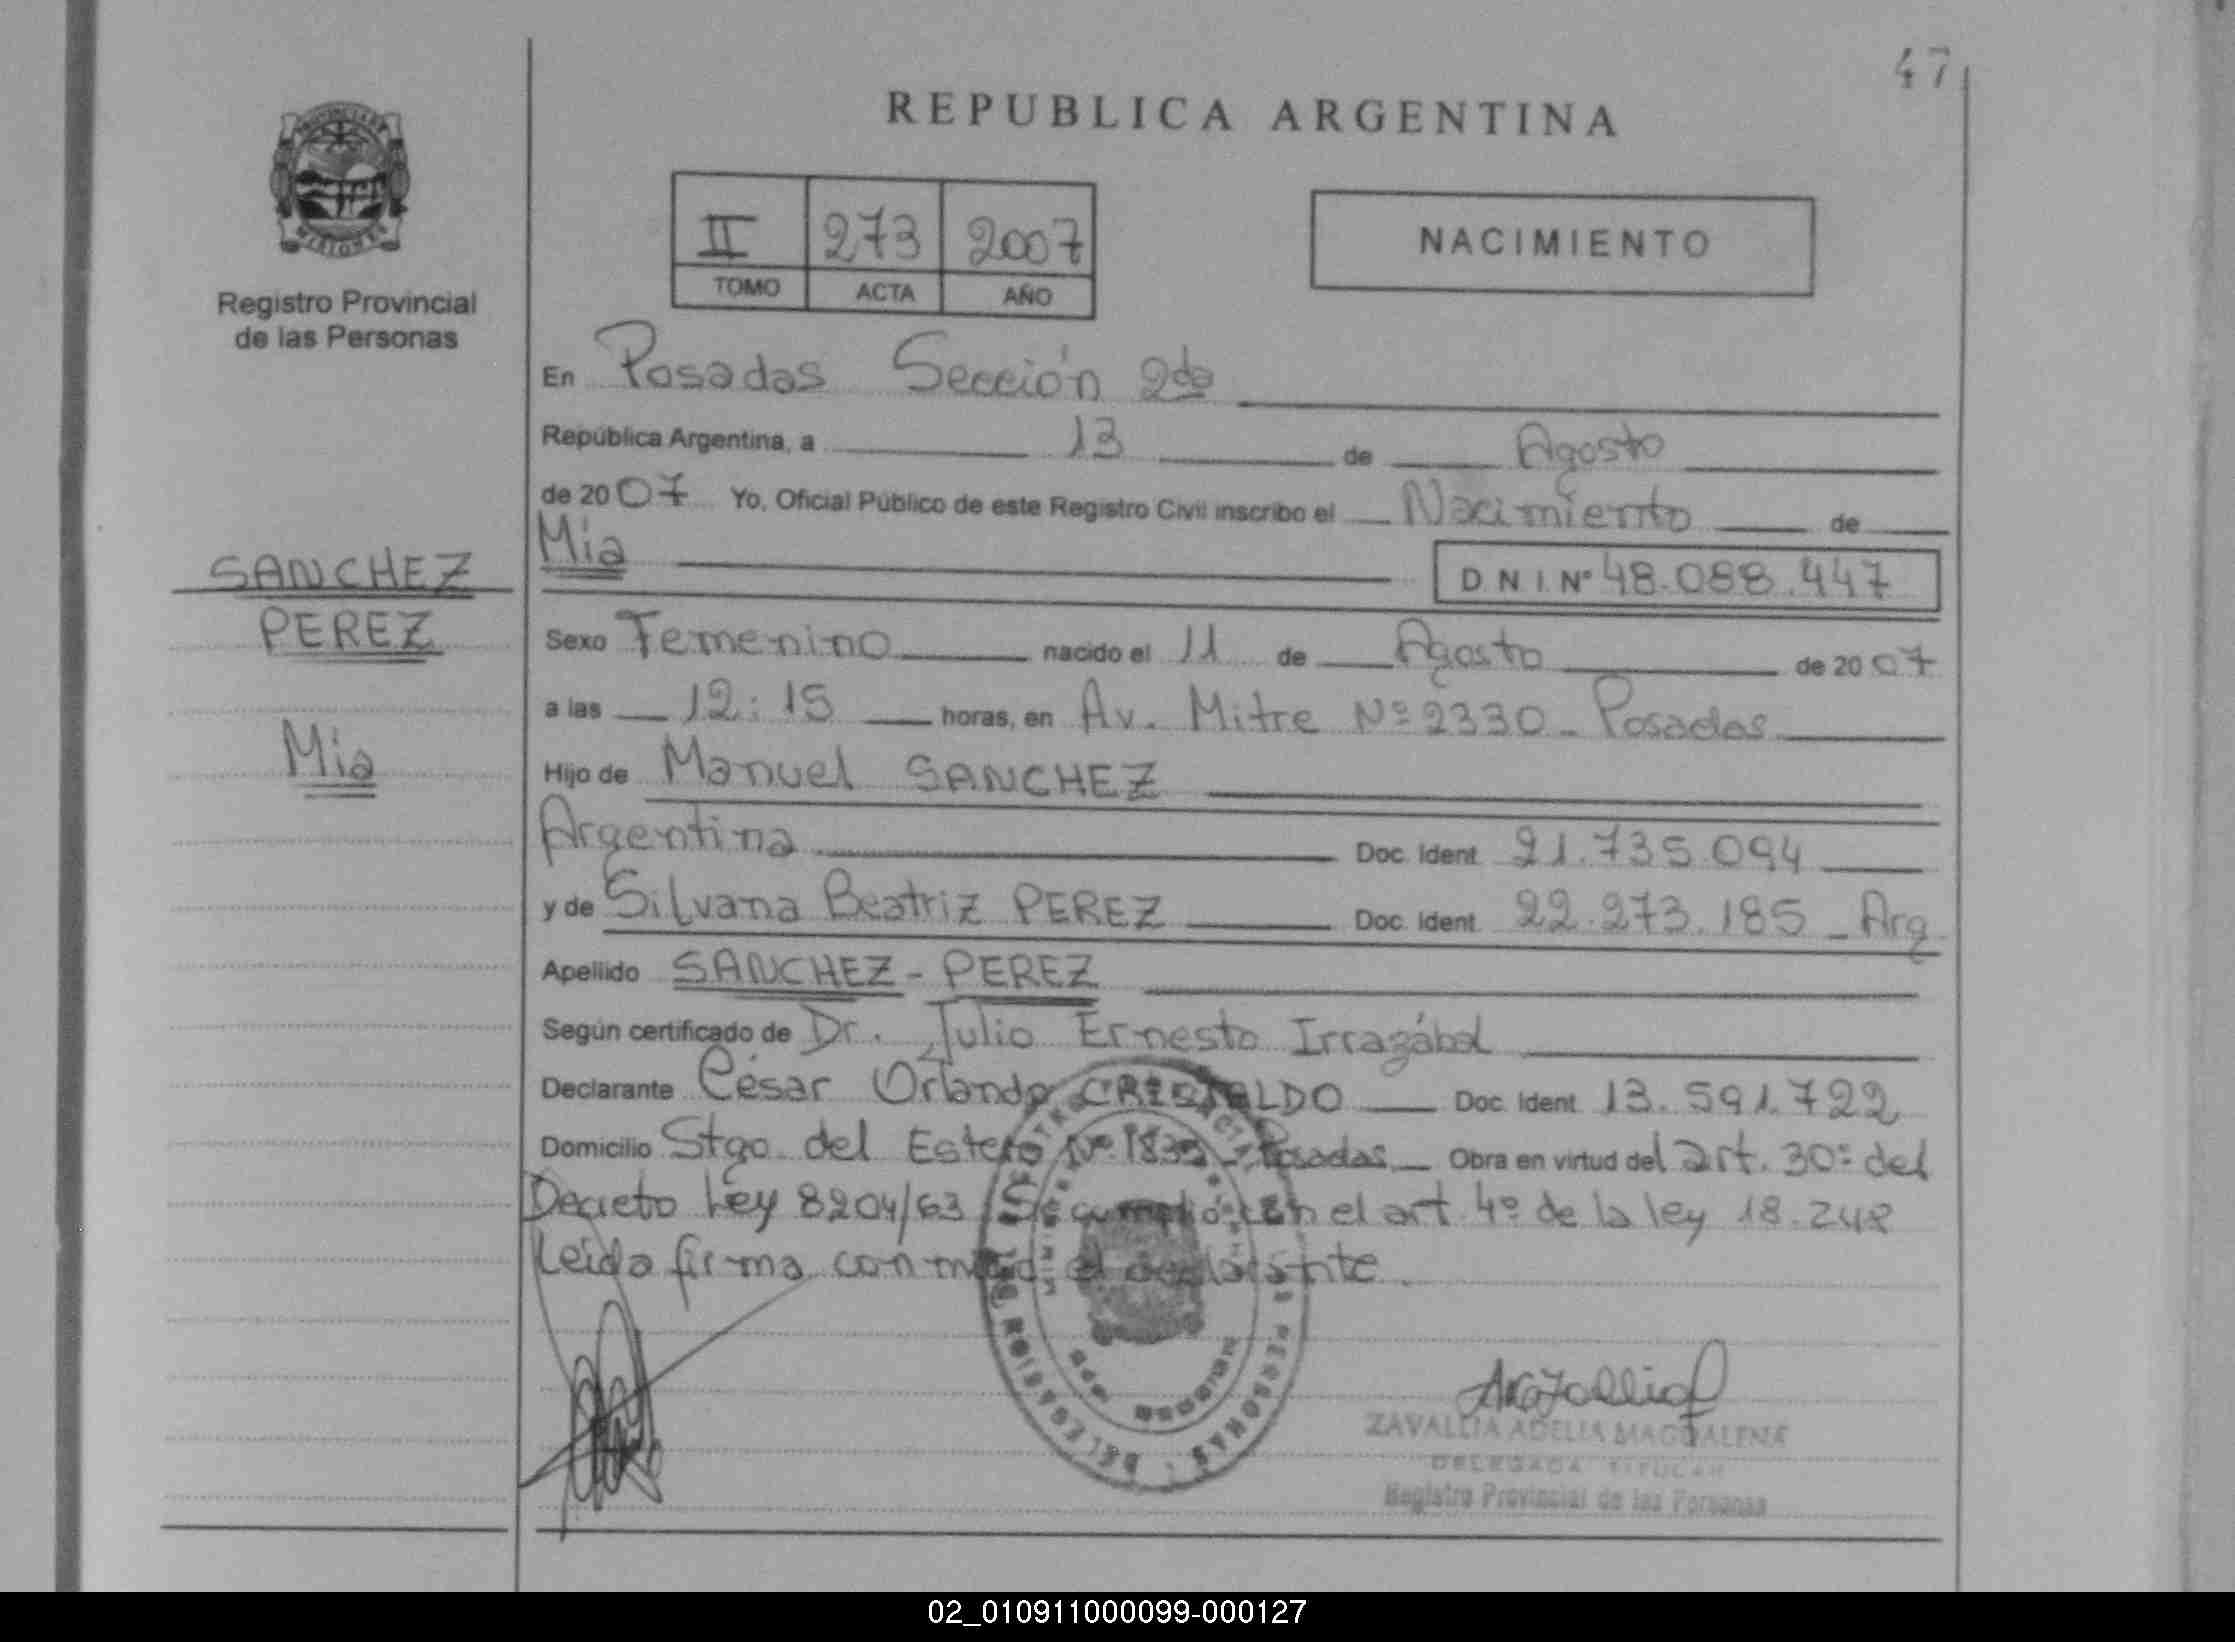 47
REPUBLICA ARGENTINA
PROVINCIA DE
MISIONES
Registro Provincial
de las Personas
II 273 2007
TOMO ACTA AÑO
NACIMIENTO
En Posadas Sección 2da
República Argentina, a 13 de Agosto
de 2007 Yo, Oficial Público de este Registro Civil inscribo el Nacimiento de
Mia D.N.I. Nº 48.088.447
SANCHEZ
PEREZ
Mia
Sexo Femenino nacido el 11 de Agosto de 2007
a las 12:15 horas, en Av. Mitre Nº 2330 - Posadas
Hijo de Manuel SANCHEZ
Argentina Doc. Ident. 21.735.094
y de Silvana Beatriz PEREZ Doc. Ident. 22.273.185 - Arg
Apellido SANCHEZ - PEREZ
Según certificado de Dr. Julio Ernesto Irrazábal
Declarante César Orlando CRISTALDO Doc. Ident. 13.591.722
Domicilio Stgo. del Estero Nº Posadas Obra en virtud del art. 30º del
Decreto Ley 8204/63 Se cumplió con el art. 4º de la ley 18.248
Leida firma conmigo el declarante.
ZAVALLIA ADELIA MAGDALENA
DELEGADA TITULAR
Registro Provincial de las Personas
02_010911000099-000127